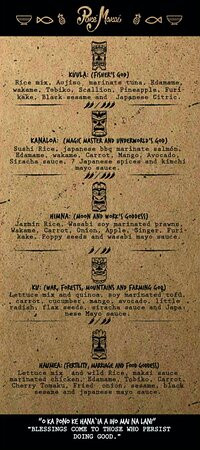 Poke Maoui
KUULA: (FISHER'S GOD)
Rice mix, Aojiso, marinate tuna, Edamame,
wakame, Tobiko, Scallion, Pineapple, Furi
kake, Black sesame and Japanese Citric.
KANALOA: (MAGIC MASTER AND UNDERWORLD'S GOD)
Sushi Rice, japanese bbq marinate salmón,
Edamame, wakame, Carrot, Mango, Avocado,
Siracha sauce, 7 Japanese spices and kimchi
mayo sauce.
HIMNA: (MOON AND WORK'S GODDESS)
Jazmin Rice, Wasabi soy marinated prawns,
Wakame, Carrot, Onion, Apple, Ginger, Furi
kake, Poppy seeds and wasabi mayo sauce.
KU: (WAR, FORESTS, MOUNTAINS AND FARMING GOD)
Lettuce mix and quinoa, soy marinated tofu,
carrot, cucumber, mango, avocado, little
radish, flax seeds, siracha sauce and Japa
nese Mayo sauce.
HAUMEA: (FERTILITY, MARRIAGE AND FOOD GODDESS)
Lettuce mix and wild Rice, makki sauce
marinated chicken, Edamame, Tobiko, Carrot,
Cherry Tomaku, Fried onion, sesame, black
sesame and japanese mayo sauce.
"O KA PONO KE HANA`IA A IHO MAI NA LANI"
"BLESSINGS COME TO THOSE WHO PERSIST
DOING GOOD."